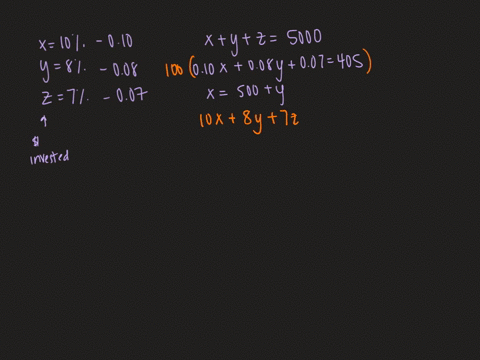 x = 10% - 0.10
y = 8% - 0.08
z = 7% - 0.07
↑
$
invested
x + y + z = 5000
100 (0.10x + 0.08y + 0.07 = 405)
x = 500 + y
10x + 8y + 7z